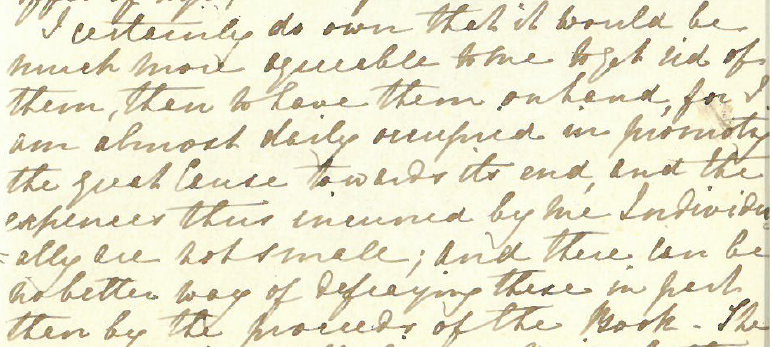 I certainly do own that it would be
much more agreeable to me to get rid of
them, then to have them on hand, for I
am almost daily occupied in promotg
the great Cause towards its end, and the
expences thus incurred by me Individu
=ally are not small; and there can be
no better way of defraying these in part
then by the proceeds of the Book - The